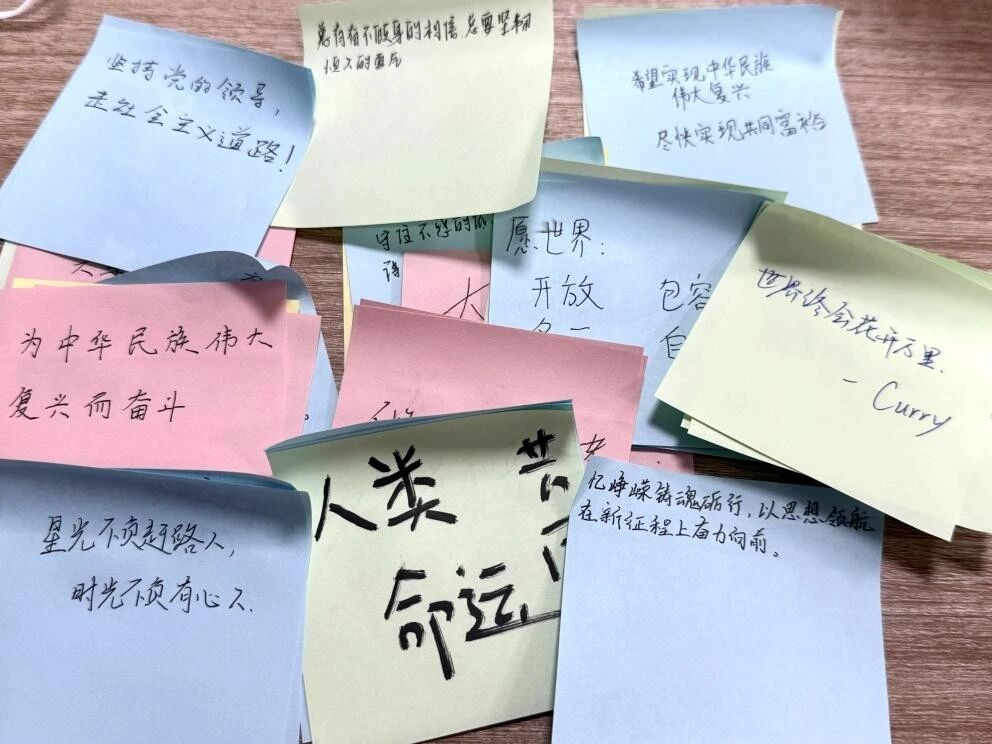 坚持党的领导，
走社会主义道路！
总有着不
的相信，总要坚韧
恒久的
希望实现中华民族
伟大复兴
尽快实现共同富裕
守住不
愿世界：
开放 包容
自
大
世界终会花开万里.
- Curry
为中华民族伟大
复兴而奋斗
人类
命运
星光不负赶路人，
时光不负有心人.
忆峥嵘铸魂砺行，以思想领航
在新征程上奋力向前。